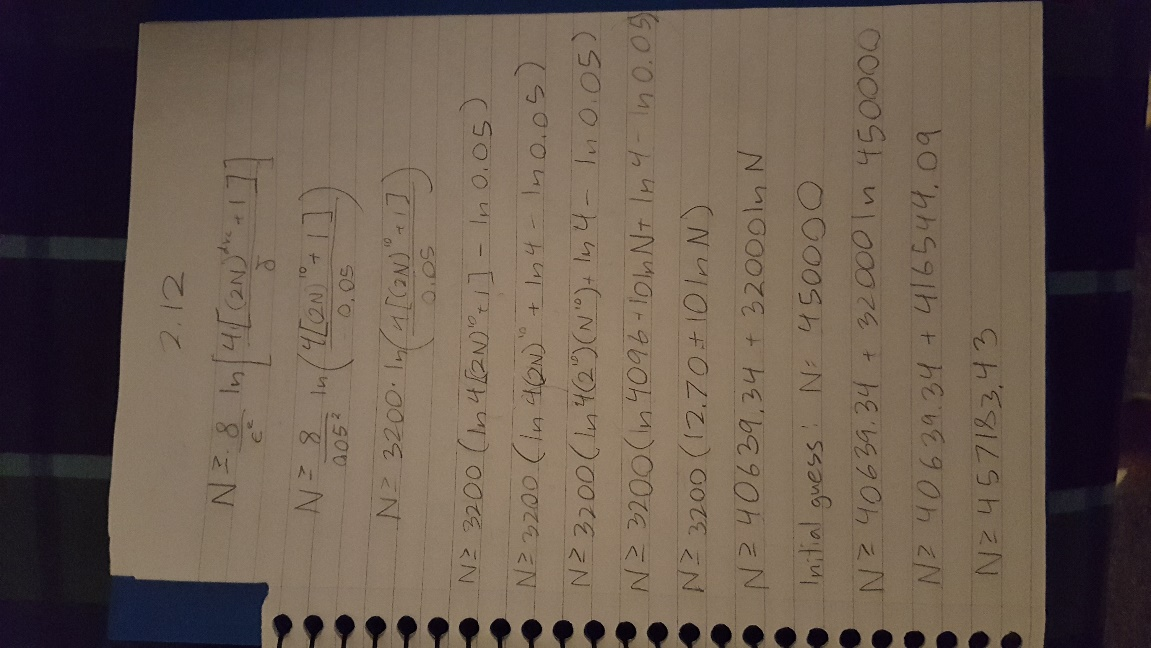 2.12
N ≥ 8/ε² ln [4[(2N)^dvc + 1]/δ]
N ≥ 8/0.05² ln (4[(2N)^10 + 1]/0.05)
N ≥ 3200 · ln (4[(2N)^10 + 1]/0.05)
N ≥ 3200 (ln 4[(2N)^10 + 1] - ln 0.05)
N ≥ 3200 (ln 4(2N)^10 + ln 4 - ln 0.05)
N ≥ 3200 (ln 4(2^10)(N^10) + ln 4 - ln 0.05)
N ≥ 3200 (ln 4096 + 10 ln N + ln 4 - ln 0.05)
N ≥ 3200 (12.70 + 10 ln N)
N ≥ 40639.34 + 32000 ln N
Initial guess: N = 450000
N ≥ 40639.34 + 32000 ln 450000
N ≥ 40639.34 + 416544.09
N ≥ 457183.43